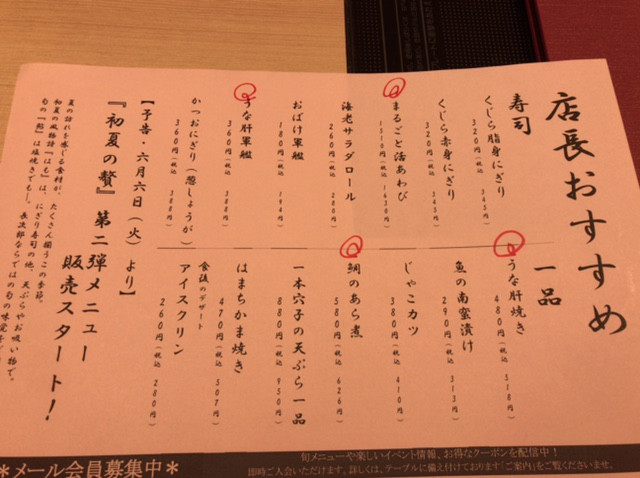 店長おすすめ
寿司
くじら脂身にぎり
320円(税込 345円)
くじら赤身にぎり
320円(税込 345円)
まるごと活あわび
1510円(税込 1630円)
海老サラダロール
260円(税込 280円)
おばけ軍艦
180円(税込 194円)
うな肝軍艦
360円(税込 388円)
かつおにぎり(葱しょうが)
360円(税込 388円)
一品
うな肝焼き
480円(税込 518円)
魚の南蛮漬け
290円(税込 313円)
じゃこカツ
380円(税込 410円)
鯛のあら煮
580円(税込 626円)
一本穴子の天ぷら一品
880円(税込 950円)
はまちかま焼き
470円(税込 507円)
食後のデザート
アイスクリン
260円(税込 280円)
【予告・六月六日(火)より】
『初夏の贅』第二弾メニュー
販売スタート!
夏の訪れを感じる食材が、たくさん揃うこの季節。
初夏の風物詩『はも』は、にぎり寿司の他、天ぷらやお吸い物で。
旬の『鮎』は塩焼きでも。長次郎ならではの旬の味覚を
*メール会員募集中*
旬メニューや楽しいイベント情報、お得なクーポンを配信中!
即時ご入会いただけます。詳しくは、テーブルに備え付けております「ご案内」をご覧くださいませ。